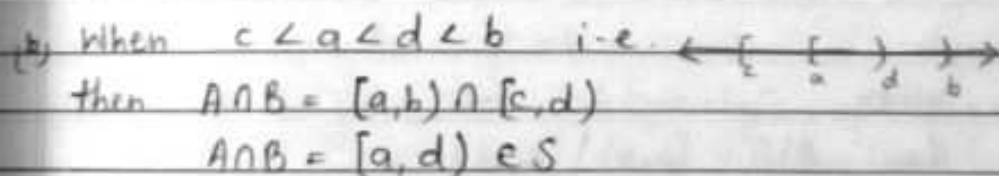 (b) When c < a < d < b i.e. c a d b
then A∩B = [a,b) ∩ [c,d)
A∩B = [a,d) ∈ S